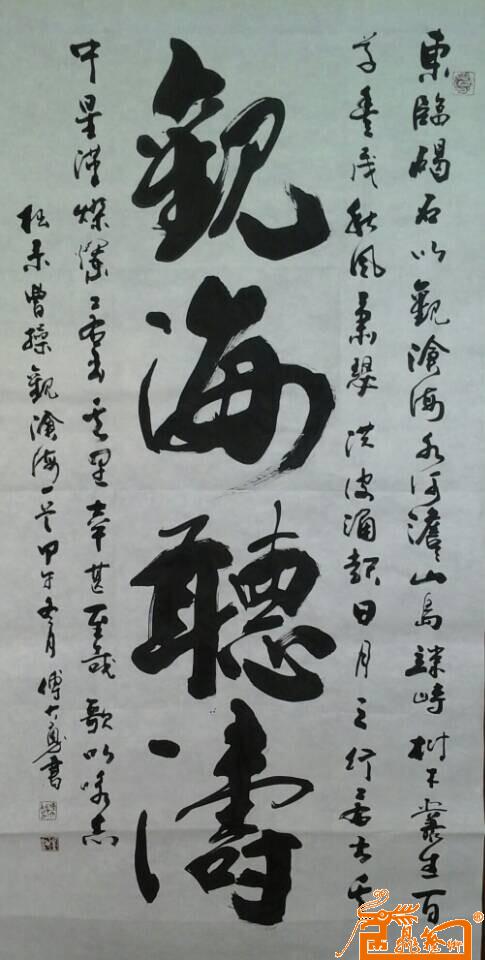 東臨碣石以觀滄海水何澹澹山島竦峙樹木叢生百
草豐茂秋風蕭瑟洪波涌起日月之行若出其
觀海聽濤
中星漢燦爛若出其里幸甚至哉歌以咏志
录曹操觀滄海一首甲午冬月傅書